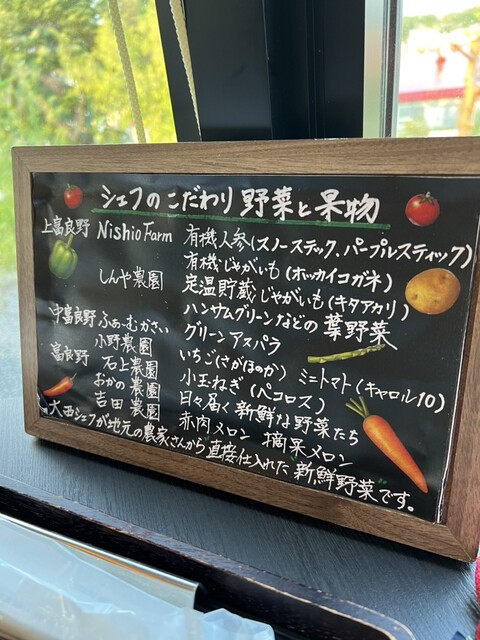 シェフのこだわり野菜と果物
上富良野 Nishio Farm 有機人参(スノースティック、パープルスティック)
有機じゃがいも(ホッカイコガネ)
しんや農園 定温貯蔵じゃがいも(キタアカリ)
ハンサムグリーンなどの葉野菜
中富良野 ふぁーむかさい グリーンアスパラ
小野農園 いちご(さがほのか) ミニトマト(キャロル10)
富良野 石上農園 小玉ねぎ(ペコロス)
おかの農園 日々届く新鮮な野菜たち
吉田農園 赤肉メロン 摘果メロン
大西シェフが地元の農家さんから"直接仕入れた"新鮮野菜"です。